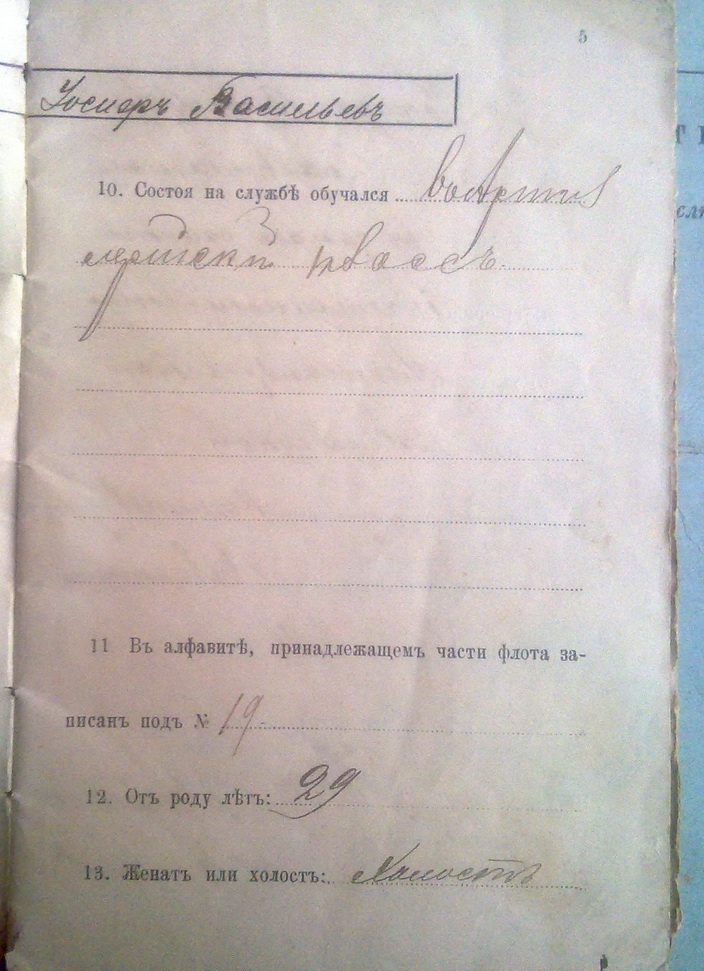 5
Іосифъ Васильевъ
10. Состоя на службѣ обучался
классъ
11 Въ алфавитѣ, принадлежащемъ части флота за-
писанъ подъ № 19
12. Отъ роду лѣтъ: 29
13. Женатъ или холостъ: Холостъ